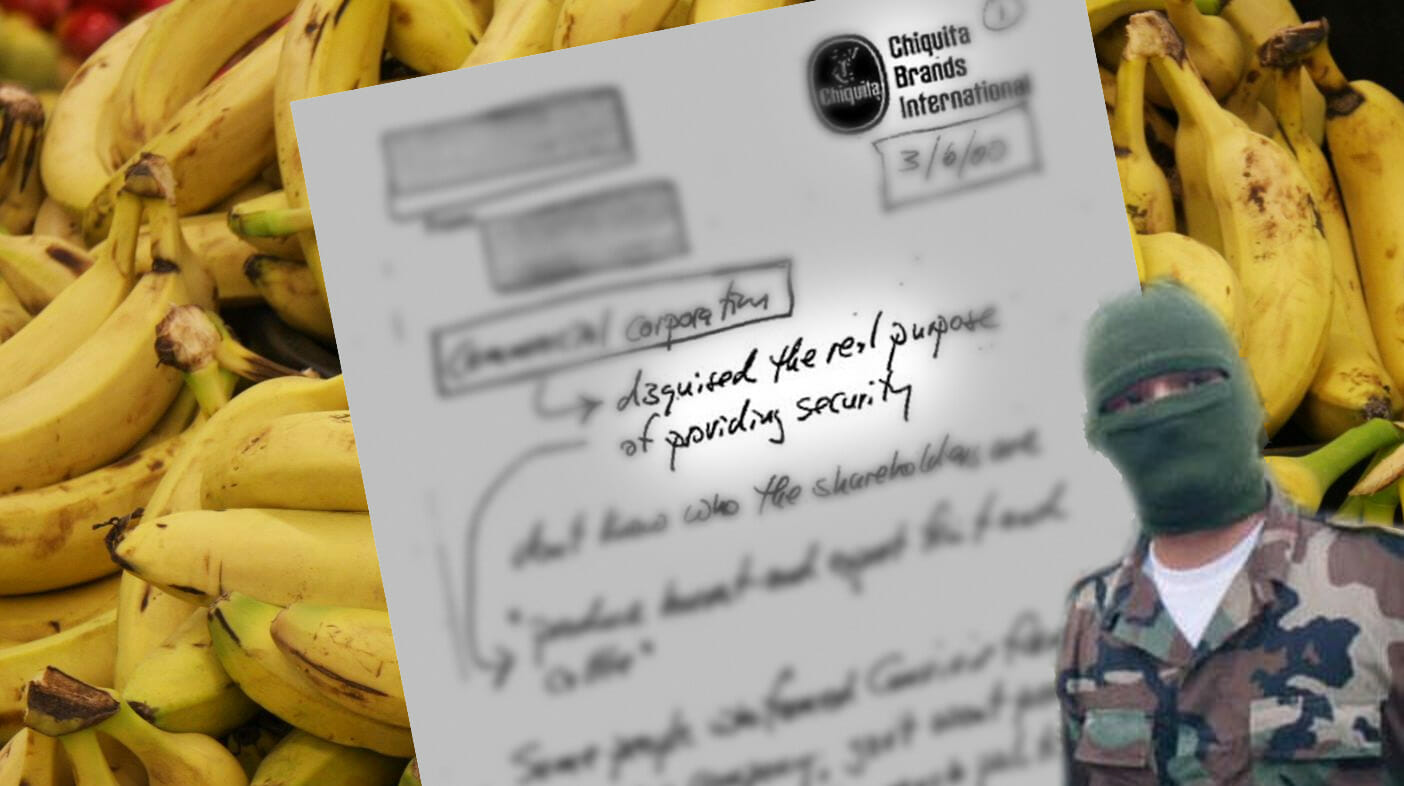 1
Chiquita
Brands
International
Chiquita
3/6/00
commercial corporation
disguised the real purpose
of providing security
don't know who the shareholders are
"produce harvest and export fruit and
Some people who formed
company,